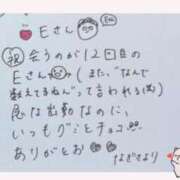 Eさん
祝 会うのが12回目の
Eさん(また、"なんで
数えてるねんって言われる(笑))
急な出勤なのに、
いつもグミとチョコ
ありがとお
なぎさより